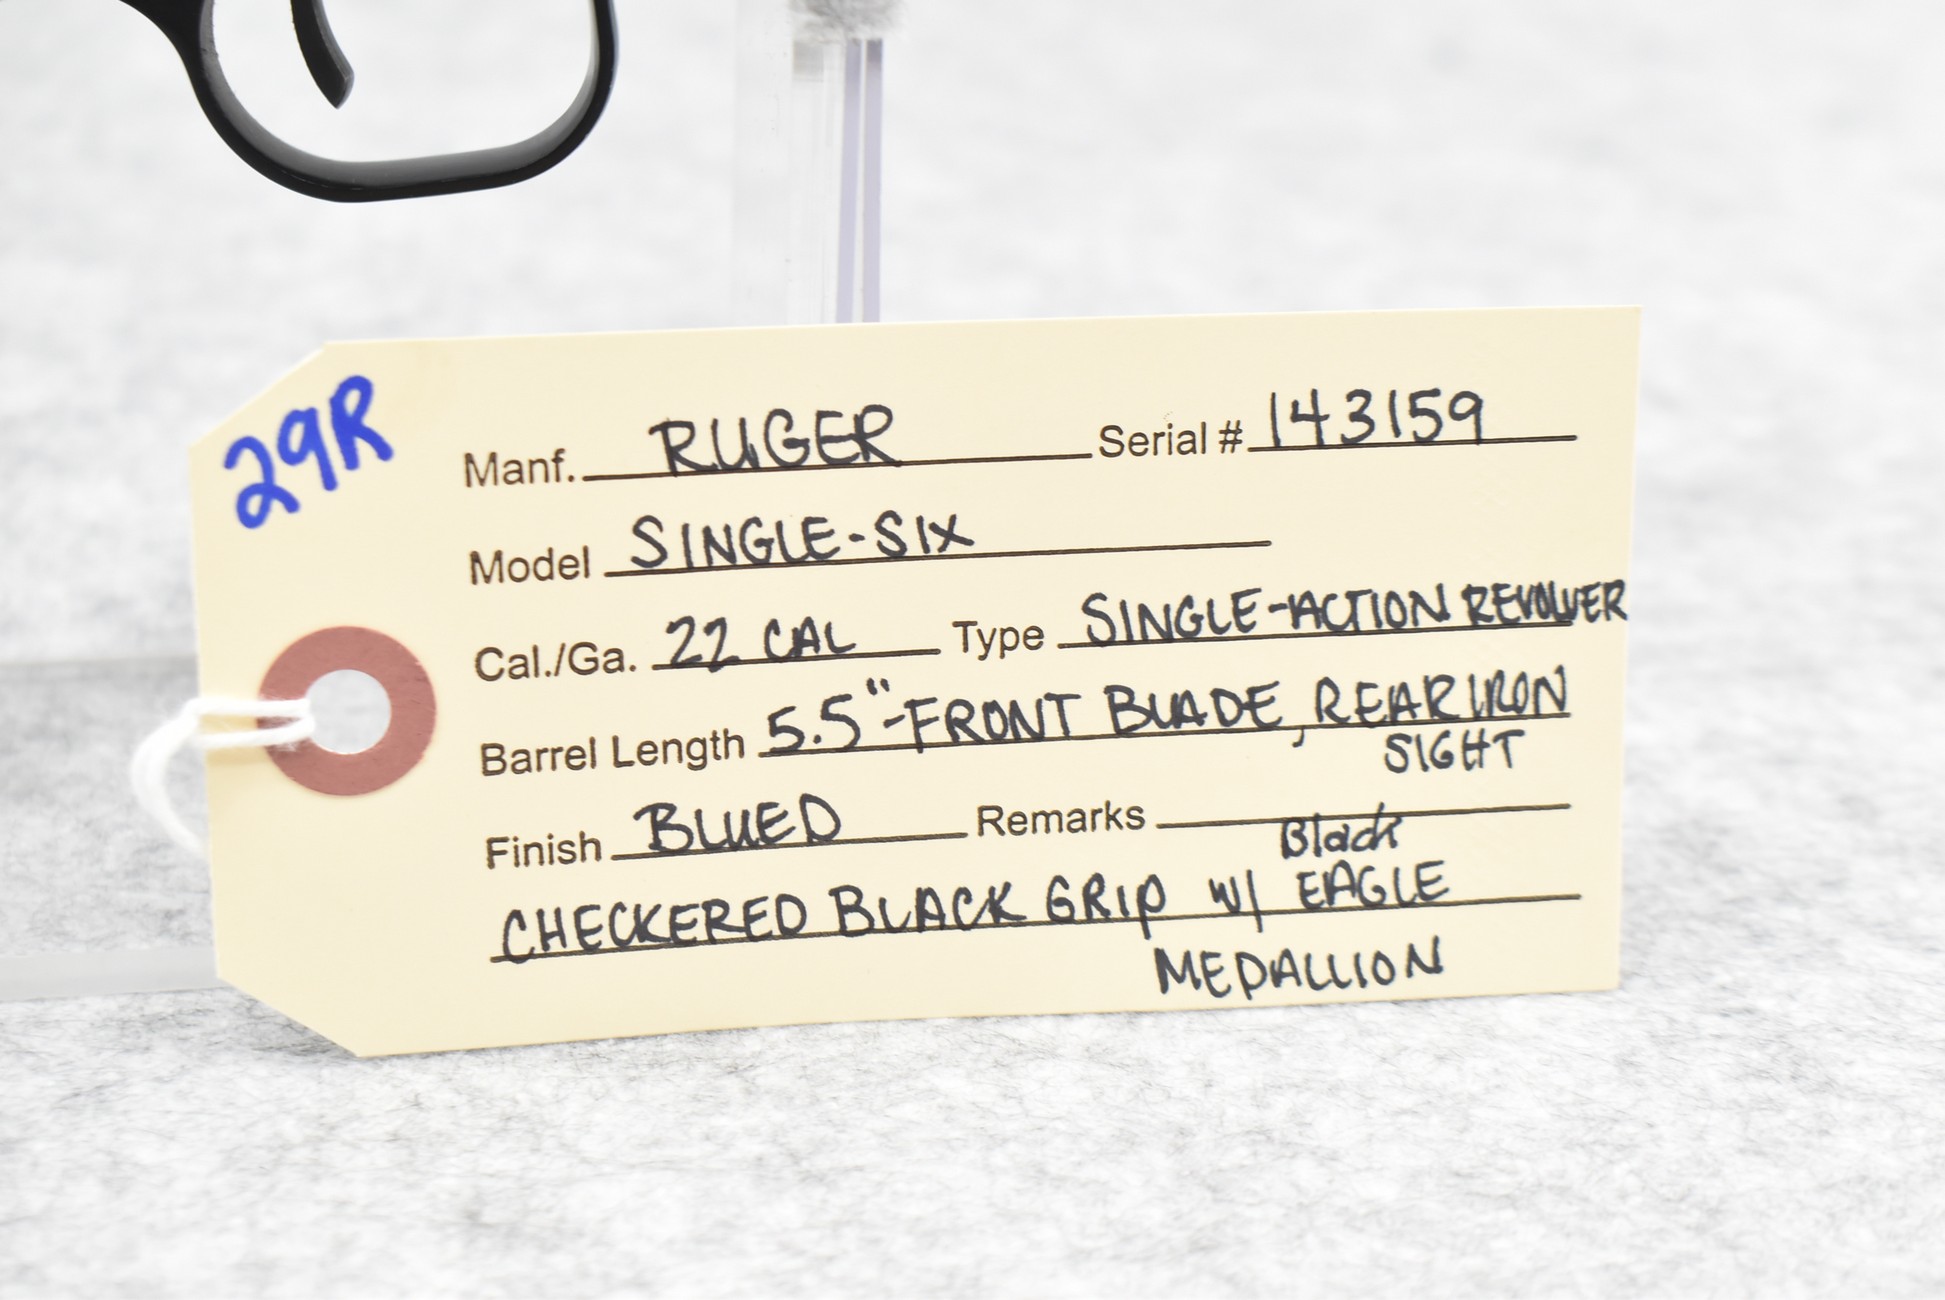 29R
Manf. RUGER Serial # 143159
Model SINGLE-SIX
Cal./Ga. 22 CAL Type SINGLE-ACTION REVOLVER
Barrel Length 5.5"-FRONT BLADE, REAR IRON
SIGHT
Finish BLUED Remarks
Black
CHECKERED BLACK GRIP w/ EAGLE
MEDALLION